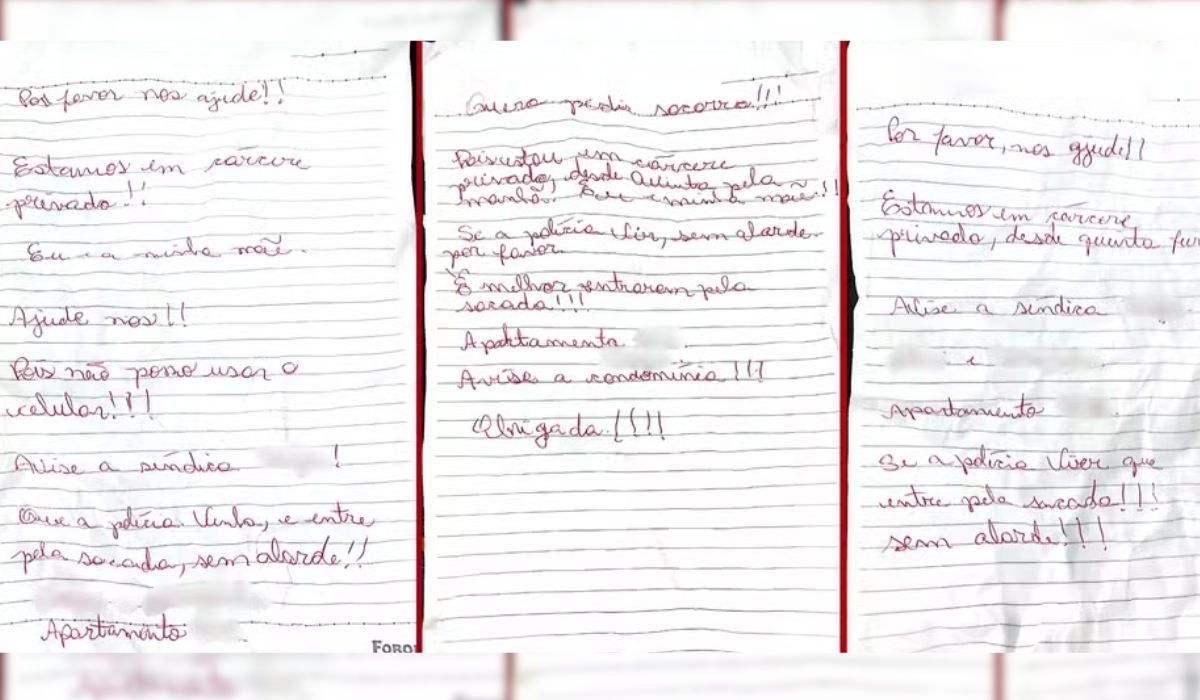 Por favor nos ajude!!
Estamos em cárcere
privado!!
Eu e a minha mãe.
Ajude nos!!
Pois não posso usar o
celular!!!
Avise a síndica !
Que a polícia Venha, e entre
pela sacada, sem alarde!!
Apartamento
FORON
Quero pedir socorro!!!
Pois estou em cárcere
privado, desde Quinta pela
manhã. Eu e minha mãe!!
Se a polícia Vir, sem alarde
por favor.
É melhor entrarem pela
sacada!!!
Apartamento
Avise a condomínia!!!
Obrigada.!!!!
Por favor, nos ajude!!
Estamos em cárcere
privado, desde quinta
Avise a síndica
e
Apartamento
Se a polícia Vier que
entre pela sacada!!!
sem alarde!!!